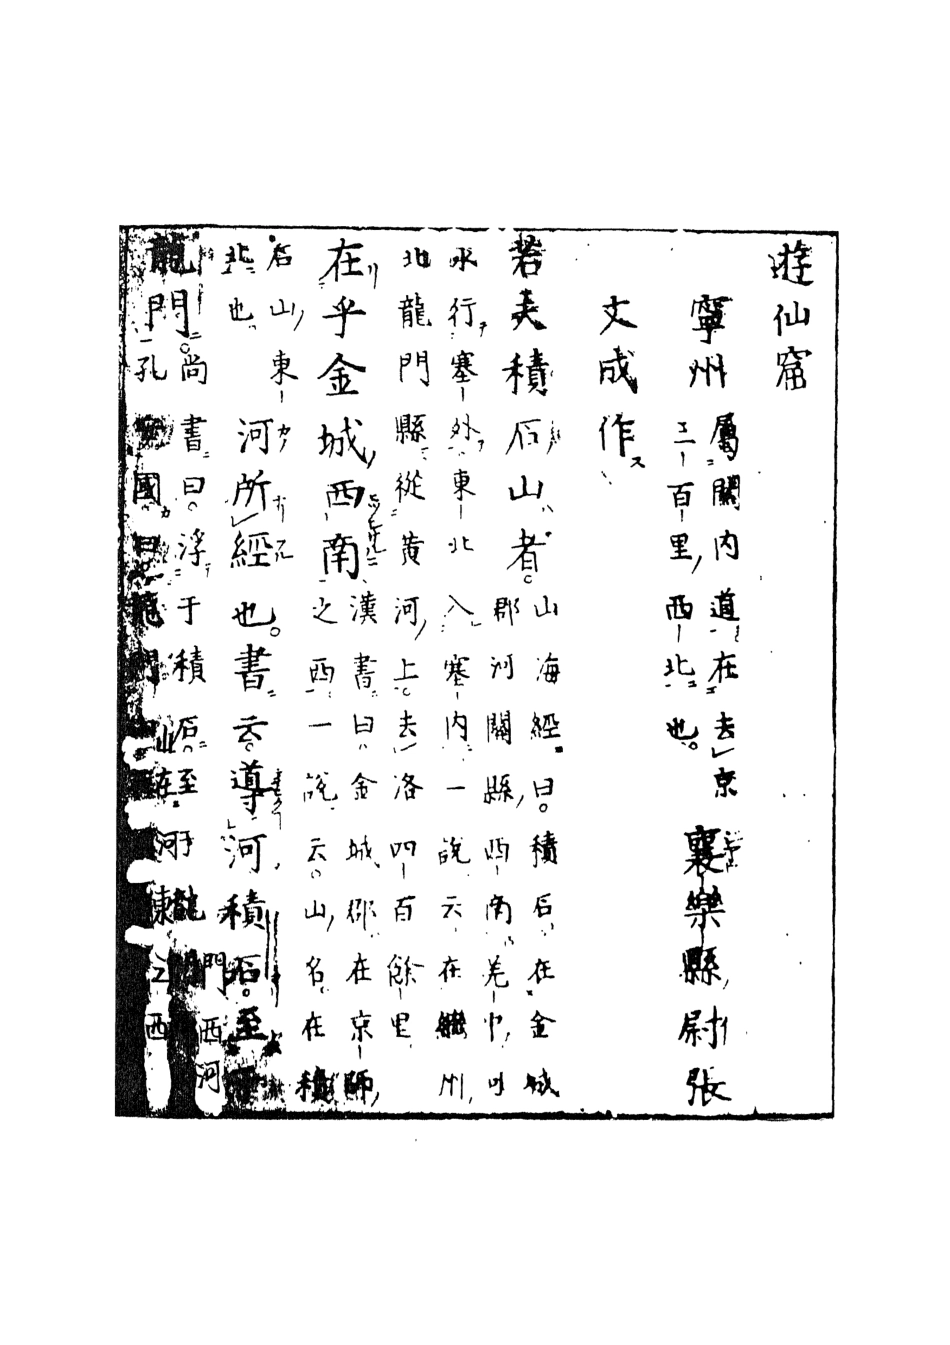 遊仙窟
寧州
屬關内道在去京
三百里西北也。
襄樂縣尉張
文成作
若夫積石山者。
山海經曰。積石在金城
郡河關縣西南羌中
水行塞外東北入塞内一説云在州
北龍門縣從黄河上去洛四百餘里
在乎金城西南
漢書曰金城郡在京師
之西一説云。山名在積
石山東
北也
河所經也。書云。導河積石。至于
龍門。
尚書曰。浮于積石。至于龍門西河
孔安國曰龍門山在河東之西